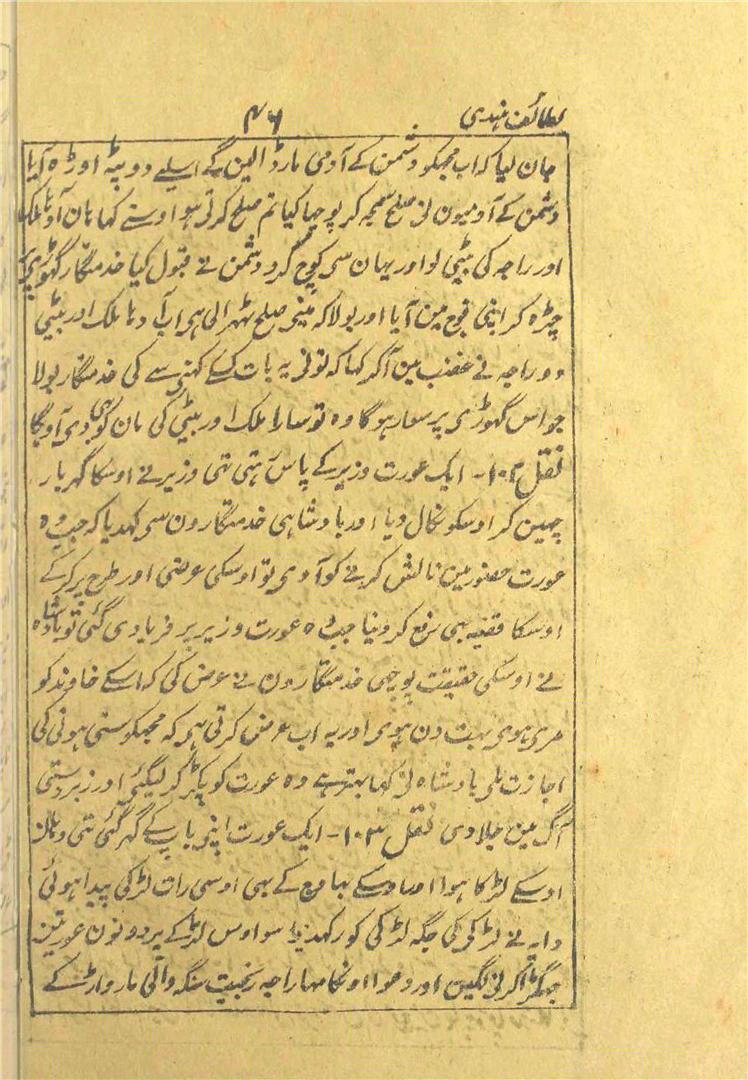 لطائف ہندی ۴۶
جان لیا کہ اب مجکو دشمن کے آدمی مار ڈالین گے اسلیے دوپٹہ اوڑہ آیا
دشمن کے آدمیون نی صلح سمجہ کر پوچہا کیا تم صلح کرتی ہو اوسنے کہا ہان آدہا ملک
اور راجہ کی بیٹی لو اور یہان سی کوچ کرو دشمن نے قبول کیا خدمتگار گہوڑی پر
چڑہ کر اپنی فوج مین آیا اور بولا کہ مینی صلح ٹہرالی ہی اب آدہا ملک اور بیٹی
دو راجہ نے غضب مین آکر کہا کہ تونی یہ بات کسکے کہنی سے کی خدمتگار بولا
جو اس گہوڑی پر سوار ہوگا وہ تو سارا ملک اور بیٹی کی مان کو بہی دی آویگا
نقل ۱۰۲- ایک عورت وزیر کے پاس رہتی تہی وزیر نے اوسکا گہر بار
چہین کر اوسکو نکال دیا اور بادشاہی خدمتگارون سی کہدیا کہ جب وہ
عورت حضور مین نالش کرنے کو آوی تو اوسکی عرضی اور طرح پر کرکے
اوسکا قضیہ بہی رفع کر دینا جب وہ عورت وزیر پر فریادی گئی تو بادشاہ
نے اوسکی حقیقت پوچہی خدمتگارون نے عرض کی کہ اسکے خاوند کو
مری ہوی بہت دن ہوی اور یہ اب عرض کرتی ہی کہ مجہکو ستی ہونی کی
اجازت ملی بادشاہ نی کہا بہتر ہے وہ عورت کو پکڑ کر لیگئی اور زبردستی
آگ مین جلا دی نقل ۱۰۳- ایک عورت اپنی باپ کے گہر گئی تہی وہان
اوسکے لڑکا ہوا اور اوسکے بہاوج کے بہی اوسی رات لڑکی پیدا ہوئی
دایہ نے لڑکی کی جگہ لڑکی کو رکہدیا سو اوس لڑکے پر دونون عورتین
جہگڑا کرنی لگین اور دعوا اونکا مہاراجہ سنگہ والی ماروارٹ کے